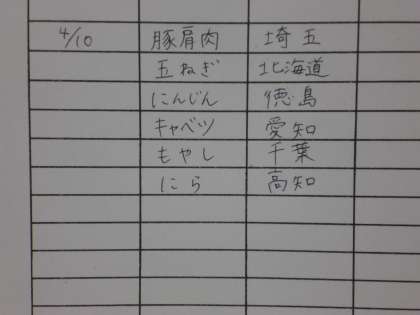 4/10 豚肩肉 埼玉
玉ねぎ 北海道
にんじん 徳島
キャベツ 愛知
もやし 千葉
にら 高知